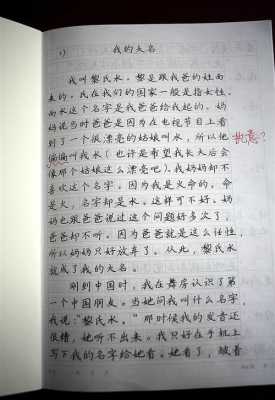 1) 我的大名
我叫黎氏水。黎是跟我爸的姓而
来的。氏在我们的国家一般是指女性。
而水这个名字是我爸爸给我起的。妈
妈说当时爸爸是因为在电视节目上看
到了一个很漂亮的姑娘叫水，所以他 执意？
偏偏叫我水（也许是希望我长大后会
像那个姑娘这么漂亮吧）。我妈妈却不
喜欢这个名字，因为我是火命的，命
是火，名字却是水，这样可不好。妈
妈也跟爸爸说过这个问题好多次了，
爸爸却不听。因为爸爸就是这么任性，
所以妈妈只好放弃了。从此，黎氏水
就成了我的大名。
刚到中国时，我在舞房认识了第
一个中国朋友。当她问我叫什么名字，
我说：“黎氏水。”那时候我的发音还
很错，她听不出来。我只好在手机上
写下我的名字给她看。她看了，皱着